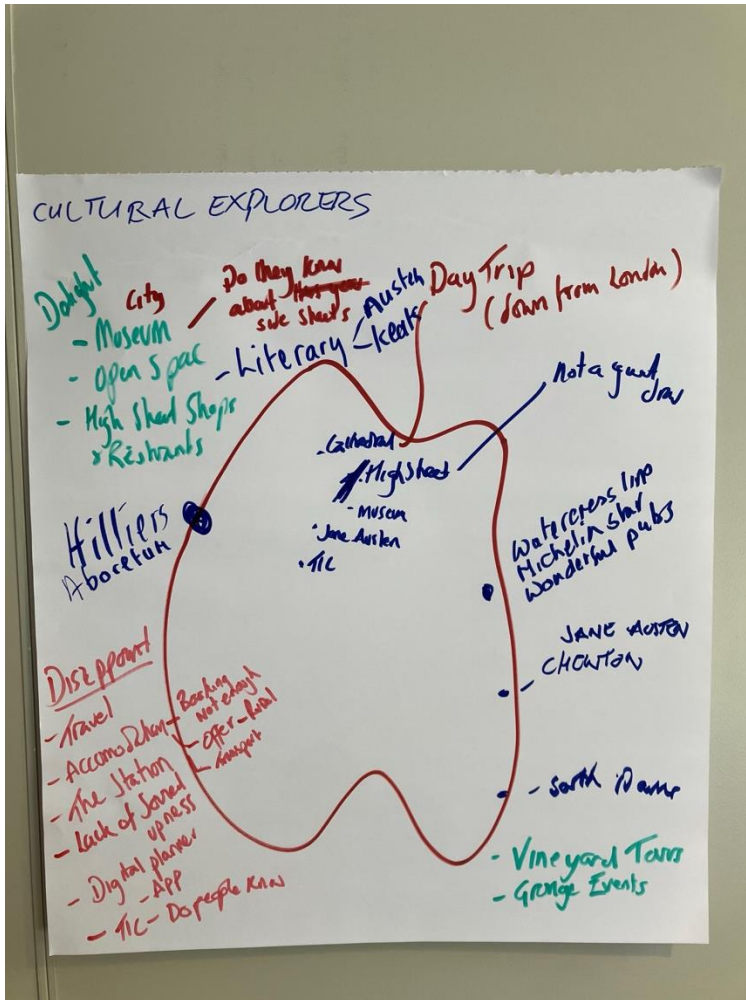 CULTURAL EXPLORERS
Delight
City
- Museum
- Open Spac
- High Street Shops
& Restrants
Do they know
about
side streets
- Literary
Austen
- Keats
Day Trip
(down from London)
Not a great
draw
- Cathedral
High Street
- Museum
- Jane Austen
- TIC
Hilliers
Aboretum
Watercress line
Michelin star
Wonderful pubs
JANE AUSTEN
- CHOWTON
- South Downs
- Vineyard Tours
- Grange Events
Disappoint
- Travel
- Accomodation
- Booking
Not enough
- Offer - Rural
- Transport
- The Station
- Lack of Joined
upness
- Digital planner
- App
- TIC - Do people know